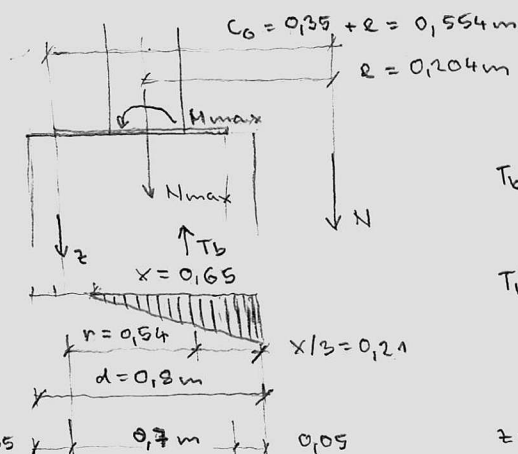 C₀ = 0,35 + e = 0,554 m
e = 0,204 m
Mmax
Nmax
N
z
Tb
x = 0,65
r = 0,54
x/3 = 0,21
d = 0,8 m
0,7 m
0,05
z